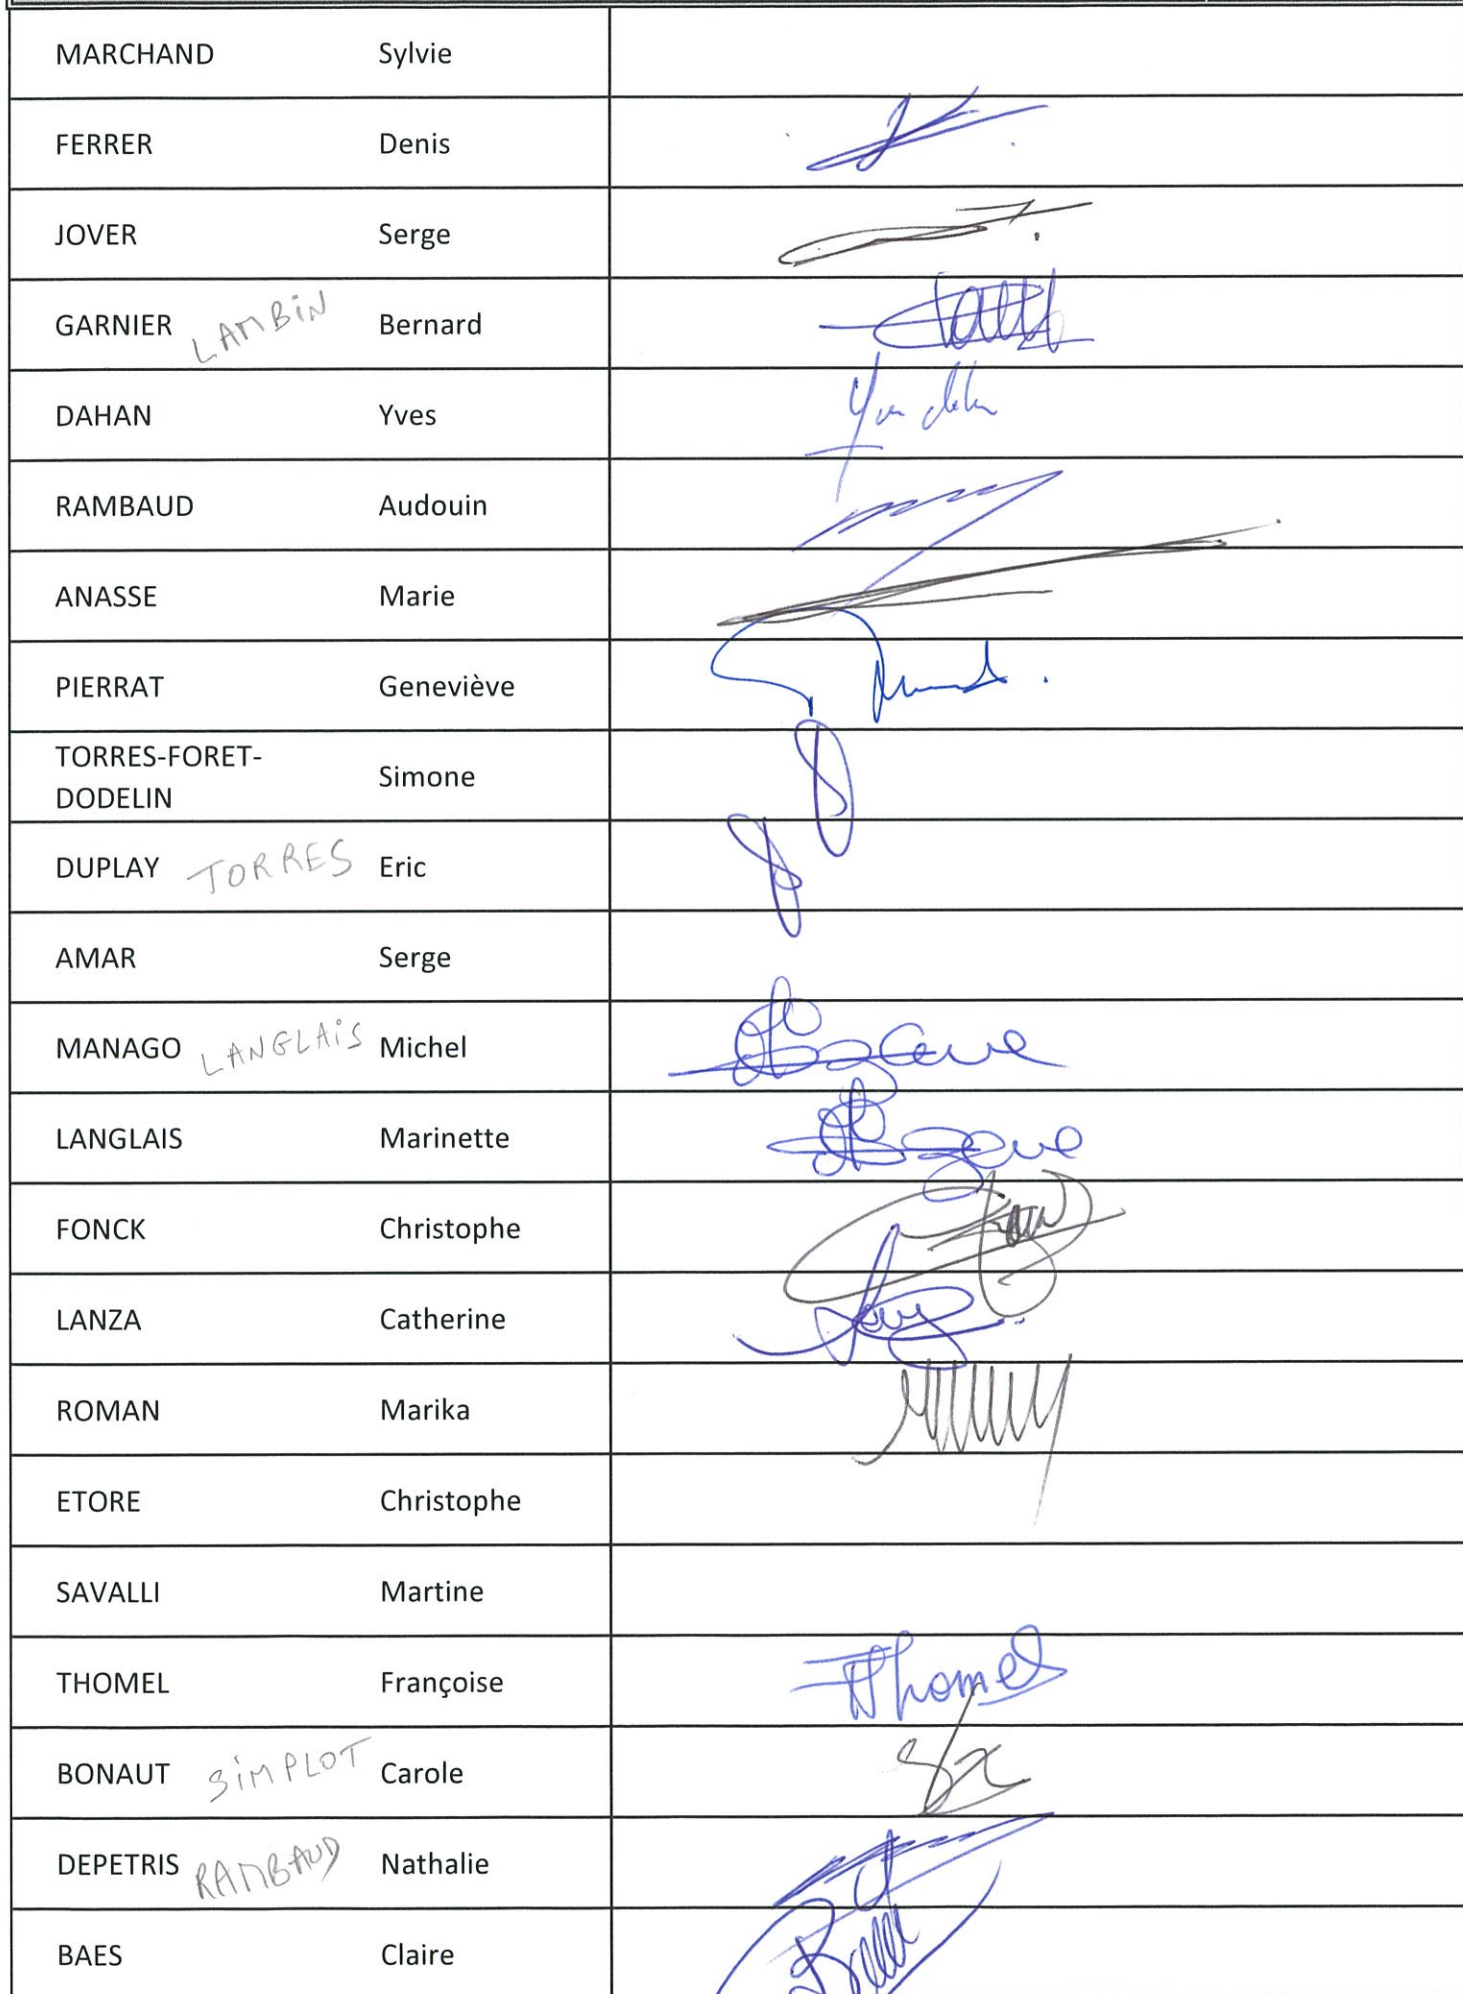 MARCHAND Sylvie
FERRER Denis
JOVER Serge
GARNIER LAMBiN Bernard
DAHAN Yves
RAMBAUD Audouin
ANASSE Marie
PIERRAT Geneviève
TORRES-FORET-
DODELIN Simone
DUPLAY TORRES Eric
AMAR Serge
MANAGO LANGLAiS Michel
LANGLAIS Marinette
FONCK Christophe
LANZA Catherine
ROMAN Marika
ETORE Christophe
SAVALLI Martine
THOMEL Françoise Thomel
BONAUT SiMPLOT Carole
DEPETRIS RAMBAUD Nathalie
BAES Claire